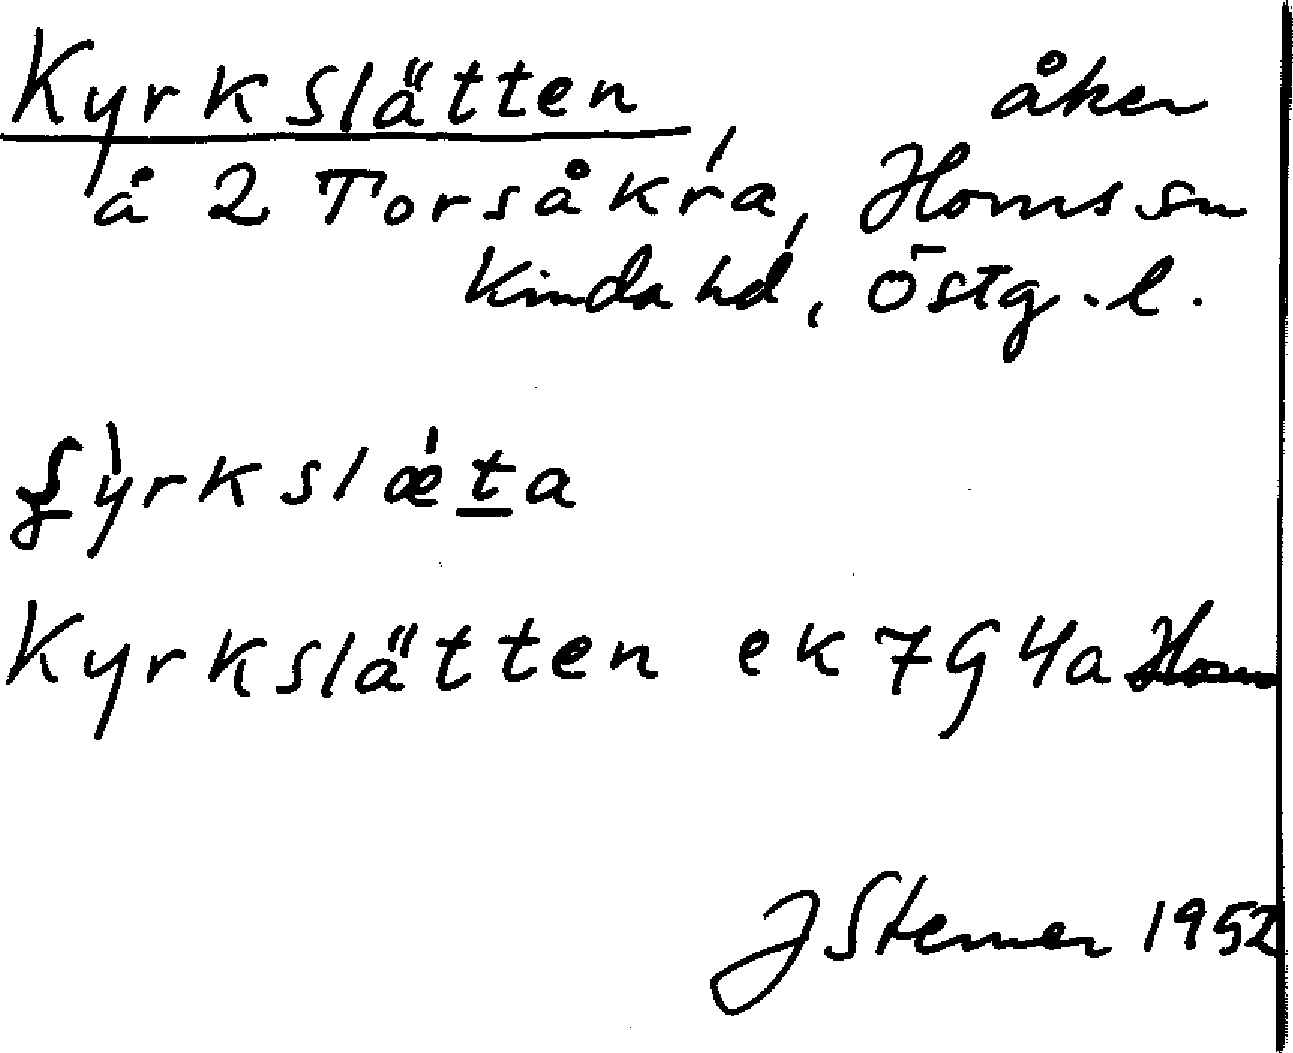 Kyrkslätten, åker
å 2 Torsåkra, Horns sn
Kinda hd, Östg.l.
ʃẏrkslæta
Kyrkslätten ek 7G4a Horn
J Sterner 1952